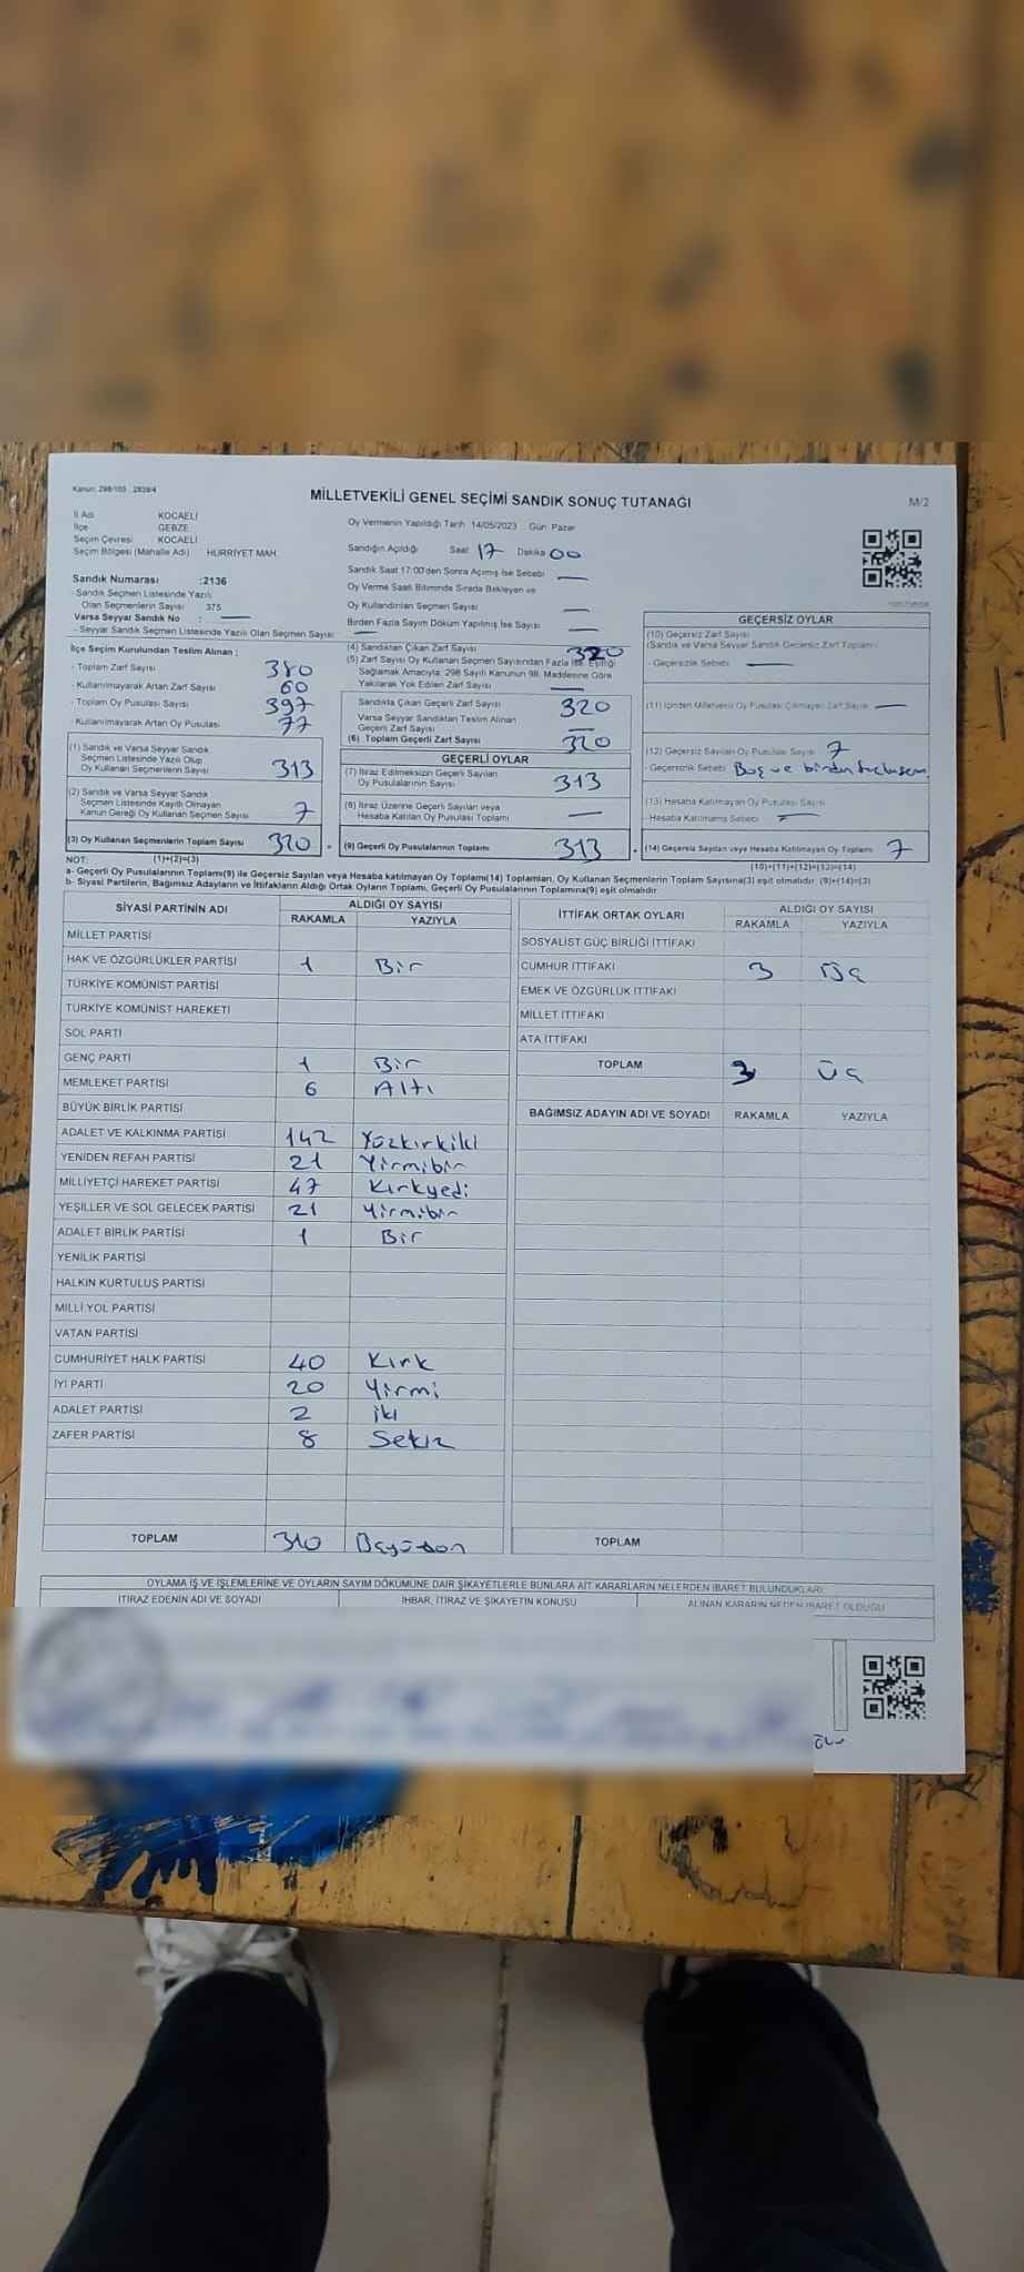 Kanun: 298/105 2839/4
MİLLETVEKİLİ GENEL SEÇİMİ SANDIK SONUÇ TUTANAĞI
M/2
İl Adı KOCAELİ
İlçe GEBZE
Seçim Çevresi KOCAELİ
Seçim Bölgesi (Mahalle Adı) HÜRRİYET MAH.
Oy Vermenin Yapıldığı Tarih 14/05/2023 Gün Pazar
Sandığın Açıldığı Saat 17 Dakika 00
Sandık Saat 17:00'den Sonra Açılmış İse Sebebi —
Oy Verme Saati Bitiminde Sırada Bekleyen ve
Oy Kullandırılan Seçmen Sayısı —
Birden Fazla Sayım Döküm Yapılmış İse Sayısı —
Sandık Numarası :2136
- Sandık Seçmen Listesinde Yazılı
Olan Seçmenlerin Sayısı 375
Varsa Seyyar Sandık No : —
- Seyyar Sandık Seçmen Listesinde Yazılı Olan Seçmen Sayısı —
İlçe Seçim Kurulundan Teslim Alınan :
- Toplam Zarf Sayısı 380
- Kullanılmayarak Artan Zarf Sayısı 60
- Toplam Oy Pusulası Sayısı 397
- Kullanılmayarak Artan Oy Pusulası 77
(1) Sandık ve Varsa Seyyar Sandık
Seçmen Listesinde Yazılı Olup
Oy Kullanan Seçmenlerin Sayısı 313
(2) Sandık ve Varsa Seyyar Sandık
Seçmen Listesinde Kayıtlı Olmayan
Kanun Gereği Oy Kullanan Seçmen Sayısı 7
(3) Oy Kullanan Seçmenlerin Toplam Sayısı 320
(4) Sandıktan Çıkan Zarf Sayısı 320
(5) Zarf Sayısı Oy Kullanan Seçmen Sayısından Fazla İse, Eşitliği
Sağlamak Amacıyla; 298 Sayılı Kanunun 98. Maddesine Göre
Yakılarak Yok Edilen Zarf Sayısı —
Sandıkta Çıkan Geçerli Zarf Sayısı 320
Varsa Seyyar Sandıktan Teslim Alınan
Geçerli Zarf Sayısı —
(6) Toplam Geçerli Zarf Sayısı 320
GEÇERLİ OYLAR
(7) İtiraz Edilmeksizin Geçerli Sayılan
Oy Pusulalarının Sayısı 313
(8) İtiraz Üzerine Geçerli Sayılan veya
Hesaba Katılan Oy Pusulası Toplamı —
(9) Geçerli Oy Pusulalarının Toplamı 313
GEÇERSİZ OYLAR
(10) Geçersiz Zarf Sayısı
(Sandık ve Varsa Seyyar Sandık Geçersiz Zarf Toplamı)
- Geçersizlik Sebebi —
(11) İçinden Milletvekili Oy Pusulası Çıkmayan Zarf Sayısı —
(12) Geçersiz Sayılan Oy Pusulası Sayısı 7
- Geçersizlik Sebebi Boş ve birden
(13) Hesaba Katılmayan Oy Pusulası Sayısı
- Hesaba Katılmama Sebebi —
(14) Geçersiz Sayılan veya Hesaba Katılmayan Oy Toplamı 7
NOT: (1)+(2)=(3)
(10)+(11)+(12)+(13)=(14)
a- Geçerli Oy Pusulalarının Toplamı(9) ile Geçersiz Sayılan veya Hesaba katılmayan Oy Toplamı(14) Toplamları, Oy Kullanan Seçmenlerin Toplam Sayısına(3) eşit olmalıdır. (9)+(14)=(3)
b- Siyasi Partilerin, Bağımsız Adayların ve İttifakların Aldığı Ortak Oyların Toplamı, Geçerli Oy Pusulalarının Toplamına(9) eşit olmalıdır.
SİYASİ PARTİNİN ADI ALDIĞI OY SAYISI
RAKAMLA YAZIYLA
MİLLET PARTİSİ
HAK VE ÖZGÜRLÜKLER PARTİSİ 1 Bir
TÜRKİYE KOMÜNİST PARTİSİ
TÜRKİYE KOMÜNİST HAREKETİ
SOL PARTİ
GENÇ PARTİ 1 Bir
MEMLEKET PARTİSİ 6 Altı
BÜYÜK BİRLİK PARTİSİ
ADALET VE KALKINMA PARTİSİ 142 Yüzkırkiki
YENİDEN REFAH PARTİSİ 21 Yirmibir
MİLLİYETÇİ HAREKET PARTİSİ 47 Kırkyedi
YEŞİLLER VE SOL GELECEK PARTİSİ 21 Yirmibir
ADALET BİRLİK PARTİSİ 1 Bir
YENİLİK PARTİSİ
HALKIN KURTULUŞ PARTİSİ
MİLLİ YOL PARTİSİ
VATAN PARTİSİ
CUMHURİYET HALK PARTİSİ 40 Kırk
İYİ PARTİ 20 Yirmi
ADALET PARTİSİ 2 iki
ZAFER PARTİSİ 8 Sekiz
TOPLAM 310 Üçyüzon
İTTİFAK ORTAK OYLARI ALDIĞI OY SAYISI
RAKAMLA YAZIYLA
SOSYALİST GÜÇ BİRLİĞİ İTTİFAKI
CUMHUR İTTİFAKI 3 Üç
EMEK VE ÖZGÜRLÜK İTTİFAKI
MİLLET İTTİFAKI
ATA İTTİFAKI
TOPLAM 3 Üç
BAĞIMSIZ ADAYIN ADI VE SOYADI RAKAMLA YAZIYLA
TOPLAM
OYLAMA İŞ VE İŞLEMLERİNE VE OYLARIN SAYIM DÖKÜMÜNE DAİR ŞİKAYETLERLE BUNLARA AİT KARARLARIN NELERDEN İBARET BULUNDUKLARI
İTİRAZ EDENİN ADI VE SOYADI İHBAR, İTİRAZ VE ŞİKAYETİN KONUSU ALINAN KARARIN NEDEN İBARET OLDUĞU